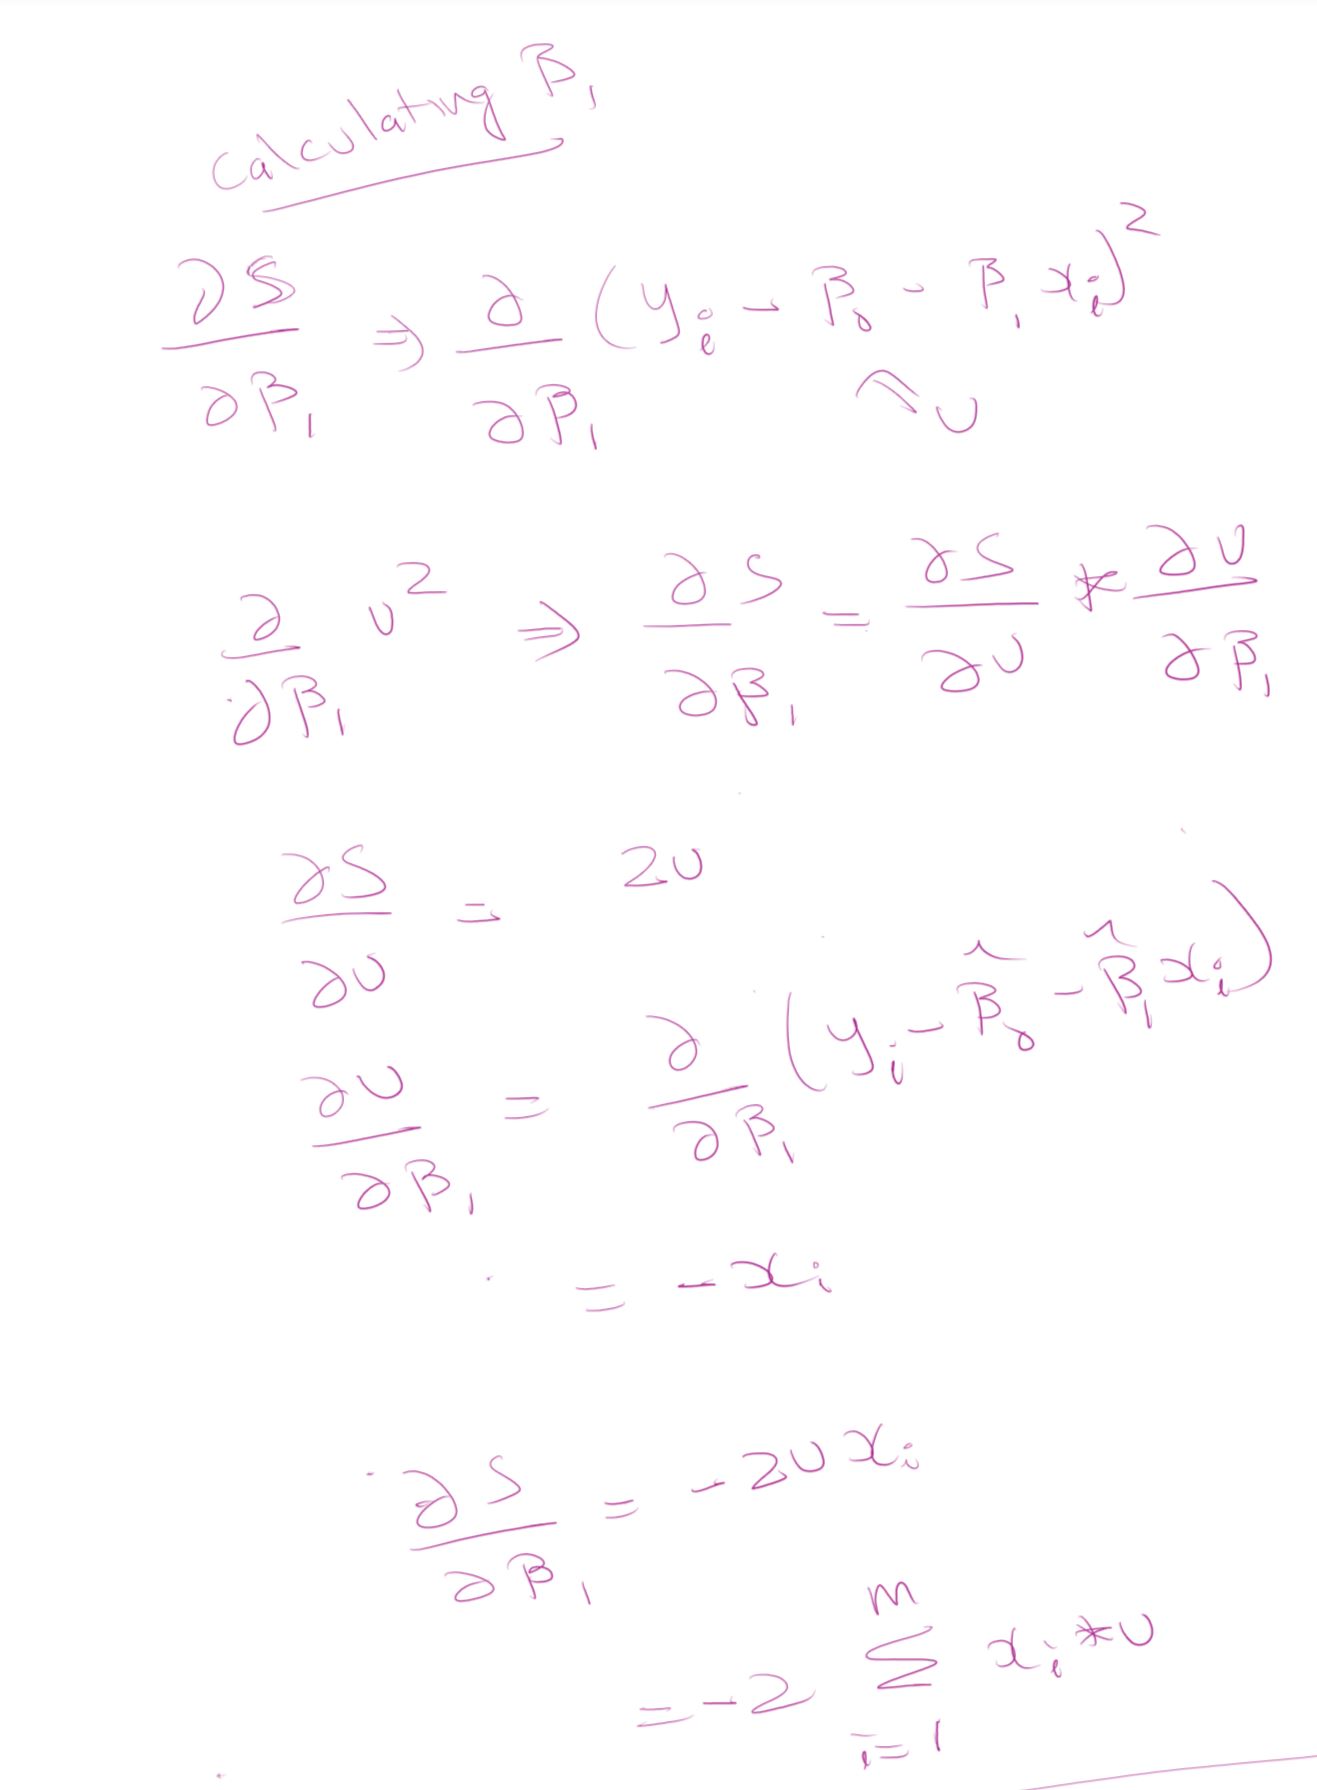 Calculating β₁
∂S/∂β₁ ⇒ ∂/∂β₁ (yᵢ - β₀ - β₁ xᵢ)²
U
∂/∂β₁ U² ⇒ ∂S/∂β₁ = ∂S/∂U * ∂U/∂β₁
∂S/∂U = 2U
∂U/∂β₁ = ∂/∂β₁ (yᵢ - β̂₀ - β̂₁ xᵢ)
= -xᵢ
∂S/∂β₁ = -2U xᵢ
= -2 ∑ᵢ₌₁ᵐ xᵢ * U